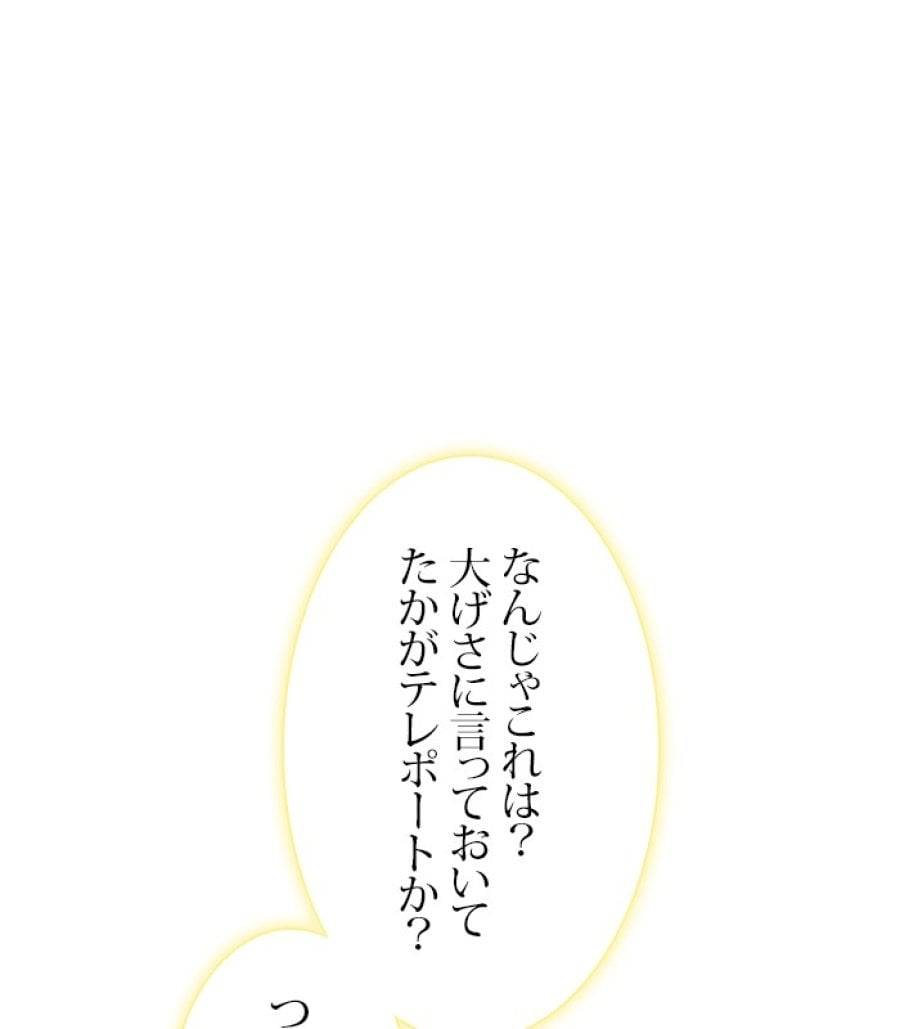 なんじゃこれは？
大げさに言っておいて
たかがテレポートか？
つ